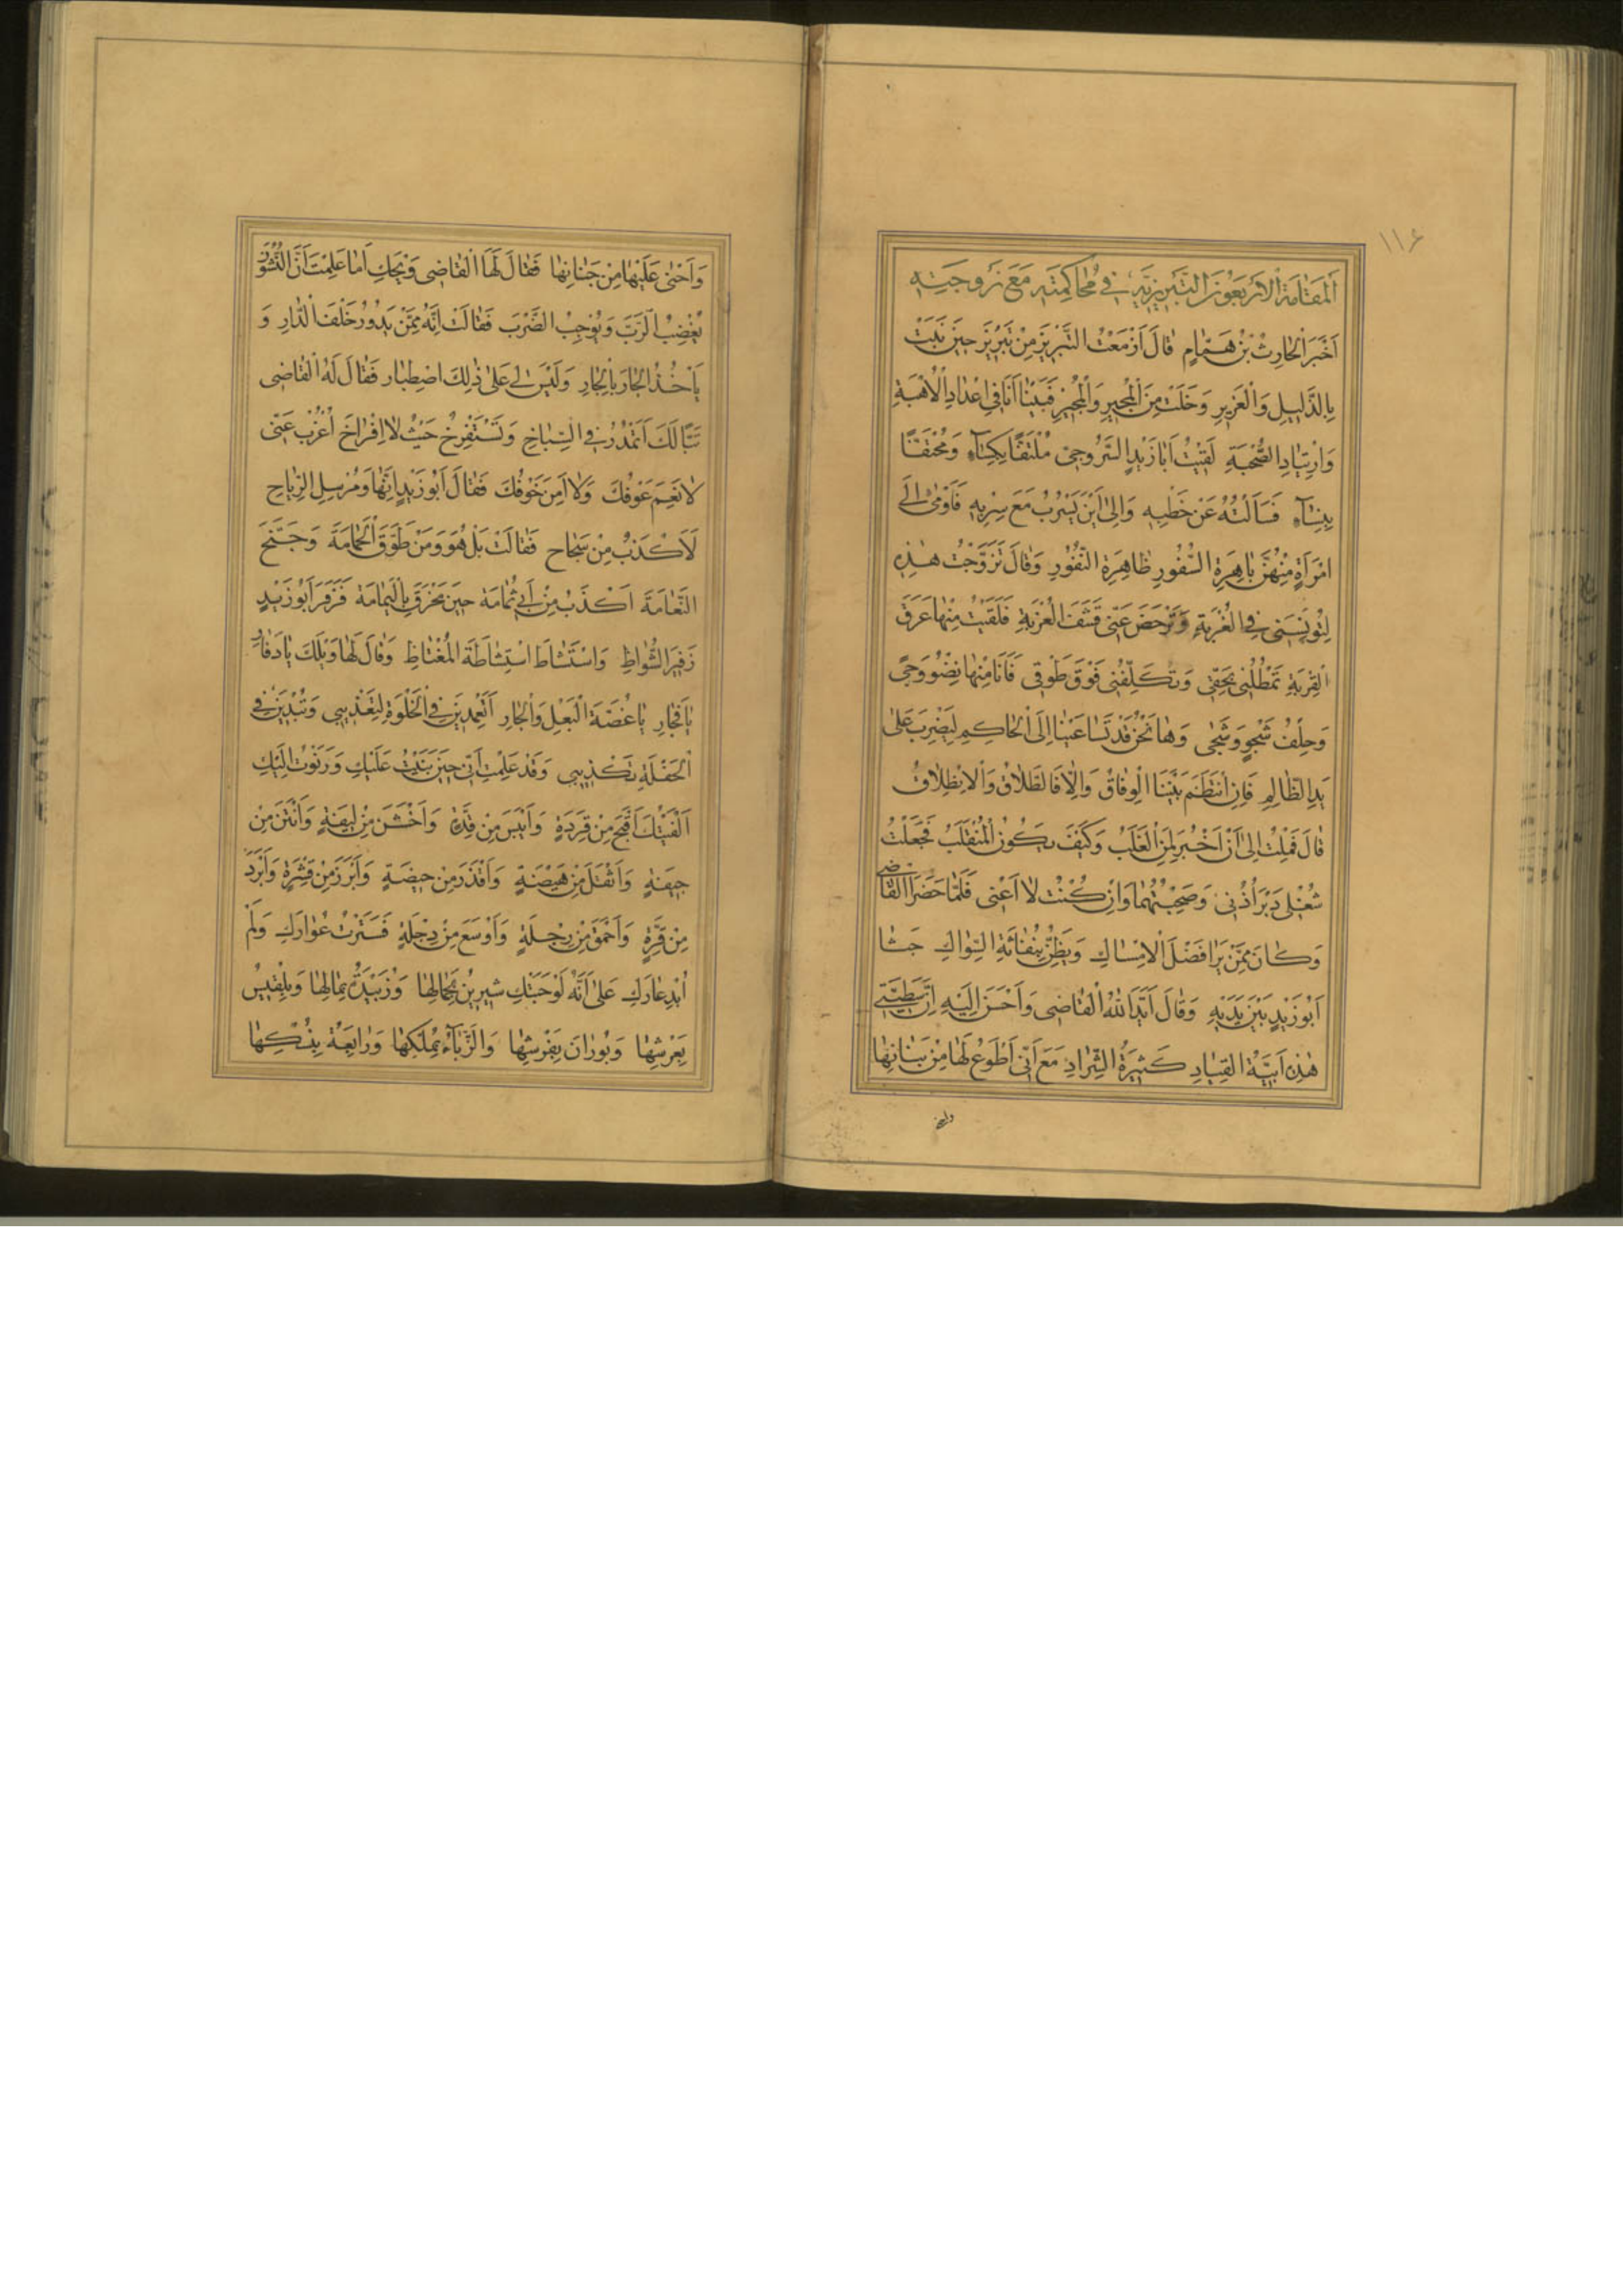 ١١۶
اَلْمَقَامَةُ الْاَرْبَعُونَ التَّبْرِيزِيَّةُ فِي مُحَاكَمَتِهِ مَعَ زَوْجَتِهِ
اَخْبَرَ الْحَارِثُ بْنُ هَمَّامٍ قَالَ اَزْمَعْتُ التَّبْرِيزَ مِنْ تَبْرِيزَ حِينَ نَبَتْ
بِالذَّلِيلِ وَالْعَزِيزِ وَخَلَتْ مِنَ الْمُجِيرِ وَالْمُجِيزِ فَبَيْنَا اَنَا فِي اِعْدَادِ الْاُهْبَةِ
وَارْتِيَادِ الصُّحْبَةِ لَقِيتُ اَبَا زَيْدٍ السَّرُوجِيَّ مُلْتَفًّا بِكِسَاءٍ وَمُحْتَفًّا
بِنِسَاءٍ فَسَاَلْتُهُ عَنْ خَطْبِهِ وَاِلَى اَيْنَ يَسْرُبُ مَعَ سِرْبِهِ فَاَوْمٰى اِلَى
امْرَاَةٍ مِنْهُنَّ بَاهِرَةِ السُّفُورِ ظَاهِرَةِ النُّفُورِ وَقَالَ تَزَوَّجْتُ هٰذِهِ
لِتُونِسَنِي فِي الْغُرْبَةِ وَتَرْحَضَ عَنِّي قَشَفَ الْعُزْبَةِ فَلَقِيتُ مِنْهَا عَرَقَ
الْقِرْبَةِ تَمْطُلُنِي بِحَقِّي وَتُكَلِّفُنِي فَوْقَ طَوْقِي فَاَنَا مِنْهَا نِضْوُ وَجًى
وَحِلْفُ شَجْوٍ وَشَجًى وَهَا نَحْنُ قَدْ تَسَاعَيْنَا اِلَى الْحَاكِمِ لِيَضْرِبَ عَلَى
يَدِ الظَّالِمِ فَاِنِ انْتَظَمَ بَيْنَنَا الْوِفَاقُ وَاِلَّا فَالطَّلَاقُ وَالْاِنْطِلَاقُ
قَالَ فَمِلْتُ اِلَى اَنْ اَخْبُرَ لِمَنِ الْغَلَبُ وَكَيْفَ يَكُونُ الْمُنْقَلَبُ فَجَعَلْتُ
شُغْلِي دَبْرَ اُذُنِي وَصَحِبْتُهُمَا وَاِنْ كُنْتُ لَا اُغْنِي فَلَمَّا حَضَرَا الْقَاضِي
وَكَانَ مِمَّنْ يَرَا فَضْلَ الْاِمْسَاكِ وَيَظِنُّ بِنُفَاثَةِ السِّوَاكِ جَثَا
اَبُو زَيْدٍ بَيْنَ يَدَيْهِ وَقَالَ اَيَّدَ اللّٰهُ الْقَاضِي وَاَحْسَنَ اِلَيْهِ اِنَّ مَطِيَّتِي
هٰذِهِ اَبِيَّةُ الْقِيَادِ كَثِيرَةُ الشِّرَادِ مَعَ اَنِّي اَطْوَعُ لَهَا مِنْ بَنَانِهَا
وَاَحْنٰى عَلَيْهَا مِنْ جَنَانِهَا فَقَالَ لَهَا الْقَاضِي وَيْحَكِ اَمَا عَلِمْتِ اَنَّ النُّشُوزَ
يُغْضِبُ الرَّبَّ وَيُوجِبُ الضَّرْبَ فَقَالَتْ اِنَّهُ مِمَّنْ يَدُورُ خَلْفَ الدَّارِ وَ
يَاْخُذُ الْجَارَ بِالْجَارِ وَلَيْسَ لِي عَلَى ذٰلِكَ اصْطِبَار فَقَالَ لَهُ الْقَاضِي
تَبًّا لَكَ اَتَبْذُرُ فِي السِّبَاخِ وَتَسْتَفْرِخُ حَيْثُ لَا اِفْرَاخَ اُعْزُبْ عَنِّي
لَا نَعِمَ عَوْفُكَ وَلَا اَمِنَ خَوْفُكَ فَقَالَ اَبُو زَيْدٍ اِنَّهَا وَمُرْسِلِ الرِّيَاحِ
لَاَكْذَبُ مِنْ سَجَاحِ فَقَالَتْ بَلْ هُوَ وَمَنْ طَوَّقَ الْحَمَامَةَ وَجَنَّحَ
النَّعَامَةَ اَكْذَبُ مِنْ اَبِي ثُمَامَةَ حِينَ مَخْرَقَ بِالْيَمَامَةِ فَزَفَرَ اَبُو زَيْدٍ
زَفِيرَ الشُّوَاظِ وَاسْتَشَاطَ اسْتِشَاطَةَ الْمُغْتَاظِ وَقَالَ لَهَا وَيْلَكِ يَا دَفَارِ
يَا فَجَارِ يَا غُصَّةَ الْبَعْلِ وَالْجَارِ اَتَعْمِدِينَ فِي الْخَلْوَةِ لِتَعْذِيبِي وَتُبْدِينَ فِي
الْحَفْلَةِ تَكْذِيبِي وَقَدْ عَلِمْتِ اَنِّي حِينَ بَنَيْتُ عَلَيْكِ وَرَنَوْتُ اِلَيْكِ
اَلْفَيْتُكِ اَقْبَحَ مِنْ قِرَدَةٍ وَاَيْبَسَ مِنْ قِدَّةٍ وَاَخْشَنَ مِنْ لِيفَةٍ وَاَنْتَنَ مِنْ
جِيفَةٍ وَاَثْقَلَ مِنْ هَيْضَةٍ وَاَقْذَرَ مِنْ حِيضَةٍ وَاَبْرَزَ مِنْ قِشْرَةٍ وَاَبْرَدَ
مِنْ قِرَّةٍ وَاَحْمَقَ مِنْ رِجْلَةٍ وَاَوْسَعَ مِنْ دِجْلَةٍ فَسَتَرْتُ عُوَارَكِ وَلَمْ
اُبْدِ عَارَكِ عَلَى اَنَّهُ لَوْ حَبَتْكِ شِيرِينُ بِجَمَالِهَا وَزُبَيْدَةُ بِمَالِهَا وَبِلْقِيسُ
بِعَرْشِهَا وَبُورَانُ بِفَرْشِهَا وَالزَّبَّاءُ بِمُلْكِهَا وَرَابِعَةُ بِنُسْكِهَا